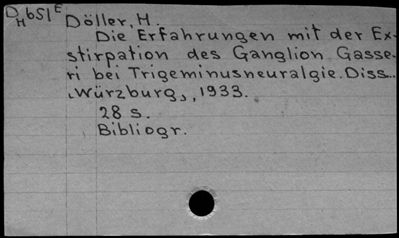 DHb51E Döller, H.
Die Erfahrungen mit der Ex-
stirpation des Ganglion Gasse-
ri bei Trigeminusneuralgie. Diss..
Würzburg, 1933.
28 s.
Bibliogr.